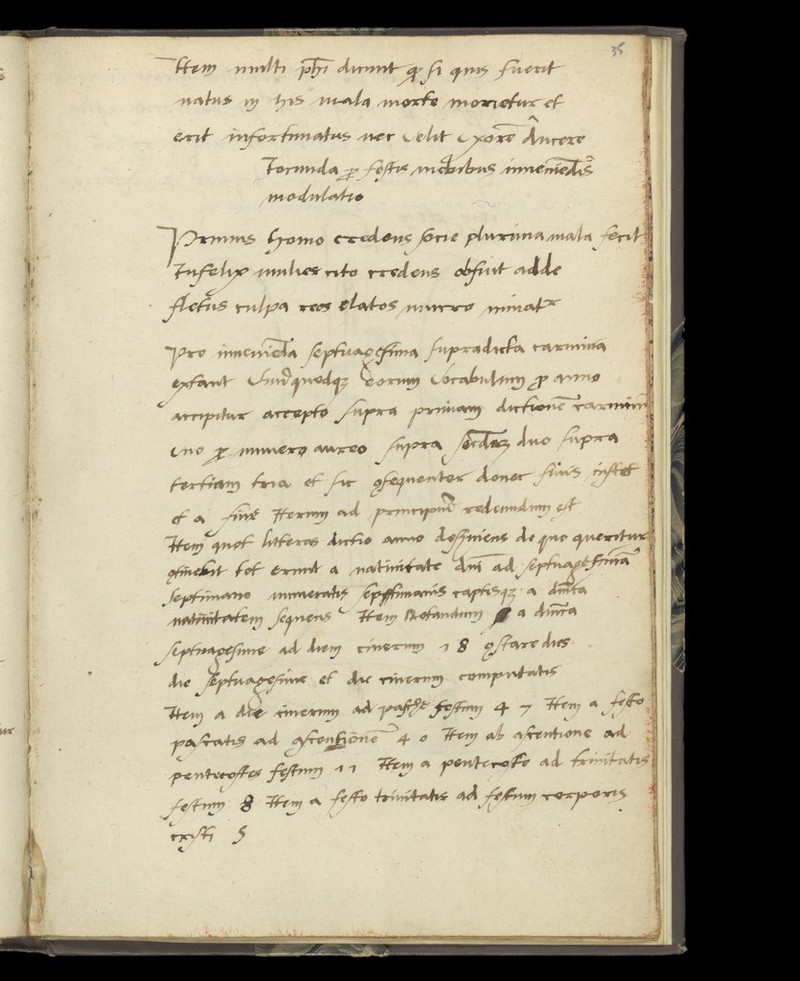 35
Item multi phi dicunt qp si quis fuerit
natus in his mala morte morietur et
erit infortunatus nec velit vxorē ducere
Iocunda p festis mobibus inueniēdis
modulatio
Primus homo credens socie plurima mala fecit
Infelix mulier cito credens obfuit adde
fletus culpa reos elatos mucro minatr
Pro inueniēda septuagesima supradicta carmina
extant Vnūquodqz eorum vocabulum p anno
accipitur accepto supra primam dictionē carminis
vno p numero aureo supra secdaz duo supra
tertiam tria et sic 9sequenter donec finis instet
et a fine Iterum ad principiū redeundum est
Item quot litteras dictio anno deseruiens de quo queritur
9tinebit tot erunt a natiuitate dni ad septuagesimā
septimane numeratis septimanis captisqz a dnica
natiuitatem sequens Item Notandum a dnica
septuagesime ad diem cinerum 18 9stare dies
die septuagesime et die cinerum computatis
Item a die cinerum ad pasche festum 47 Item a festo
pascatis ad ascensionē 40 Item ab ascentione ad
pentecostes festum 11 Item a pentecoste ad trinitatis
festum 8 Item a festo trinitatis ad festum corporis
cristi 5